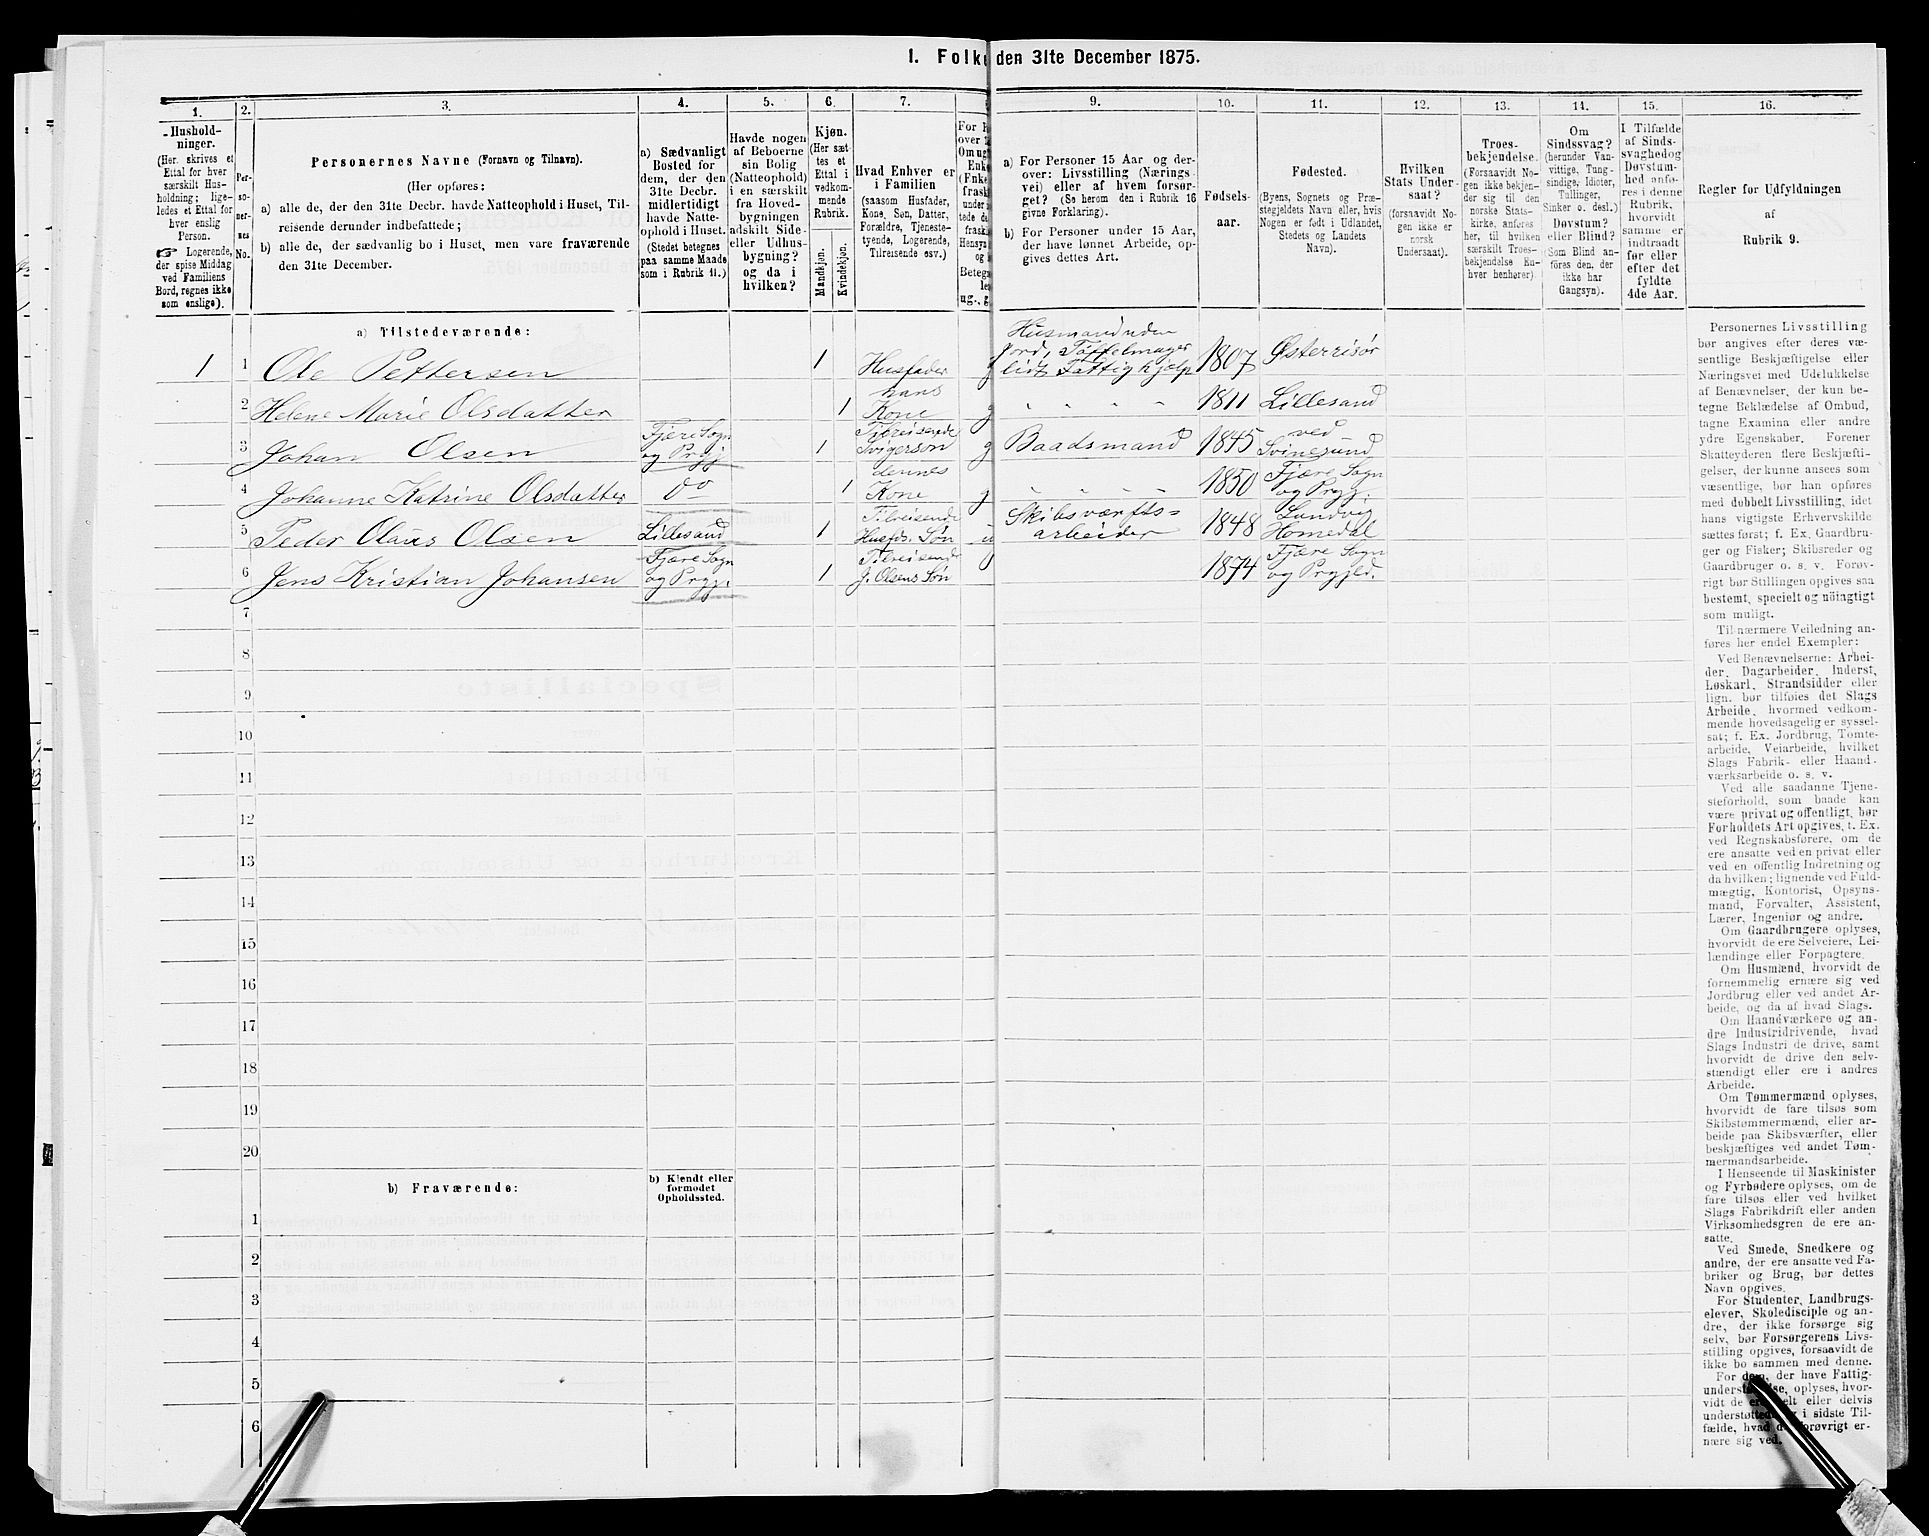 1. Folke den 31te December 1875.
1. 2. 3. 4. 5. 6. 7. 9. 10. 11. 12. 13. 14. 15. 16.
Hushold-
ninger.
(Her skrives et
Ettal for hver
særskilt Hus-
holdning; lige-
ledes et Ettal for
hver enslig
Person.
☞ Logerende,
der spise Middag
ved Familiens
Bord, regnes ikke
som enslige).
Per-
so-
ner-
nes
No.
Personernes Navne (Fornavn og Tilnavn).
(Her opføres:
a) alle de, der den 31te Decbr. havde Natteophold i Huset, Til-
reisende derunder indbefattede;
b) alle de, der sædvanlig bo i Huset, men vare fraværende
den 31te December.
a) Sædvanligt
Bosted for
dem, der den
31te Decbr.
midlertidigt
havde Natte-
ophold i Huset.
(Stedet betegnes
paa samme Maade
som i Rubrik 11.)
Havde nogen
af Beboerne
sin Bolig
(Natteophold)
i en særskilt
fra Hoved-
bygningen
adskilt Side-
eller Udhus-
bygning?
og da i
hvilken?
Kjøn.
(Her sæt-
tes et
Ettal i
vedkom-
mende
Rubrik.
Mandkjøn.
Kvindekjøn.
Hvad Enhver er
i Familien
(saasom Husfader,
Kone, Søn, Datter,
Forældre, Tjeneste-
tyende, Logerende,
Tilreisende osv.)
a) For Personer 15 Aar og der-
over: Livsstilling (Nærings-
vei) eller af hvem forsør-
get? (Se herom den i Rubrik 16
givne Forklaring).
b) For Personer under 15 Aar,
der have lønnet Arbeide, op-
gives dettes Art.
Fødsels-
aar.
Fødested.
(Byens, Sognets og Præ-
stegjeldets Navn eller, hvis
Nogen er født i Udlandet,
Stedets og Landets
Navn).
Hvilken
Stats Under-
saat?
(forsaavidt No-
gen ikke er
norsk
Undersaat).
Troes-
bekjendelse.
(Forsaavidt No-
gen ikke bekjen-
der sig til den
norske Stats-
kirke, anføres
her, til hvilken
særskilt Troes-
bekjendelse En-
hver henhører).
Om
Sindssvag?
(herunder Van-
vittige, Tung-
sindige, Idioter,
Tullinger,
Sinker o. desl.)
Døvstum?
eller Blind?
(Som Blind an-
føres den, der
ikke har
Gangsyn).
I Tilfælde
af Sinds-
svaghed og
Døvstum-
hed anfø-
res i denne
Rubrik,
hvorvidt
samme er
indtraadt
før eller
efter det
fyldte
4de Aar.
Regler for Udfyldningen
af
Rubrik 9.
a) Tilstedeværende:
1 1 Ole Pettersen 1 Husfader g Husmand uden Jord, Tøffelmager lidt Fattighjelp 1807 Østerrisør
2 Helene Marie Olsdatter 1 hans Kone g " " " " 1811 Lillesand
3 Johan Olsen Fjære Sogn og Prgj 1 Tilreisende Svigersøn g Baadsmand 1845 ved Svinesund
4 Johanne Katrine Olsdatter Do 1 dennes Kone g " " " " 1850 Fjære Sogn og Prgj.
5 Peder Olaus Olsen Lillesand 1 Tilreisende Husfds. Søn u Skibsværfts- arbeider 1848 Landvig Homedal
6 Jens Kristian Johansen Fjære Sogn og Prgj. 1 Tilreisende J. Olsens Søn 1874 Fjære Sogn og Prgjeld.
7
8
9
10
11
12
13
14
15
16
17
18
19
20
b) Fraværende:
b) Kjendt eller
formodet
Opholdssted.
1
2
3
4
5
6
Personernes Livsstilling
bør angives efter deres væ-
sentlige Beskjæftigelse eller
Næringsvei med Udelukkelse
af Benævnelser, der kun be-
tegne Beklædelse af Ombud,
tagne Examina eller andre
ydre Egenskaber. Forener
Skatteyderen flere Beskjæfti-
gelser, der kunne ansees som
væsentlige, bør han opføres
med dobbelt Livsstilling, idet
hans vigtigste Erhvervskilde
sættes først; f. Ex. Gaardbru-
ger og Fisker; Skibsreder og
Gaardbruger o. s. v. Forøv-
rigt bør Stillingen opgives saa
bestemt, specielt og nöiagtigt
som muligt.
Til nærmere Veiledning an-
føres her endel Exempler:
Ved Benævnelserne: Arbei-
der, Dagarbeider, Inderst,
Løskarl, Strandsidder eller
lign. bør tilføies det Slags
Arbeide, hvormed vedkom-
mende hovedsagelig er syssel-
sat; f. Ex. Jordbrug, Tomte-
arbeide, Veiarbeide, hvilket
Slags Fabrik- eller Haand-
værksarbeide o. s. v.
Ved alle saadanne Tjene-
steforhold, som baade kan
være privat og offentligt, bør
Forholdets Art opgives, t. Ex.
ved Regnskabsførere, om de
ere ansatte ved en privat eller
ved en offentlig Indretning og
da hvilken; lignende ved Fuld-
mægtig, Kontorist, Opsyns-
mand, Forvalter, Assistent,
Lærer, Ingeniør og andre.
Om Gaardbrugere oplyses,
hvorvidt de ere Selveiere, Lei-
lændinge eller Forpagtere.
Om Husmænd, hvorvidt de
fornemmelig ernære sig ved
Jordbrug eller ved andet Ar-
beide, og da af hvad Slags.
Om Haandværkere og an-
dre Industridrivende, hvad
Slags Industri de drive, samt
hvorvidt de drive den selv-
stændigt eller ere i andres
Arbeide.
Om Tømmermænd oplyses,
hvorvidt de fare tilsøs som
Skibstømmermænd, eller ar-
beide paa Skibsværfter, eller
beskjæftiges ved andet Tøm-
mermandsarbeide.
I Henseende til Maskinister
og Fyrbødere oplyses, om de
fare tilsøs eller ved hvilket
Slags Fabrikdrift eller anden
Virksomhedsgren de ere an-
satte.
Ved Smede, Snedkere og
andre, der ere ansatte ved Fa-
briker og Brug, bør dettes
Navn opgives.
For Studenter, Landbrugs-
elever, Skoledisciple og an-
dre, der ikke forsørge sig
selv, bør Forsørgerens Livs-
stilling opgives, forsaavidt de
ikke bo sammen med denne.
For dem, der have Fattig-
understøttelse, oplyses, hvor-
vidt de ere helt eller delvis
understøttede og i sidste Til-
fælde, hvad de forøvrigt er-
nære sig ved.